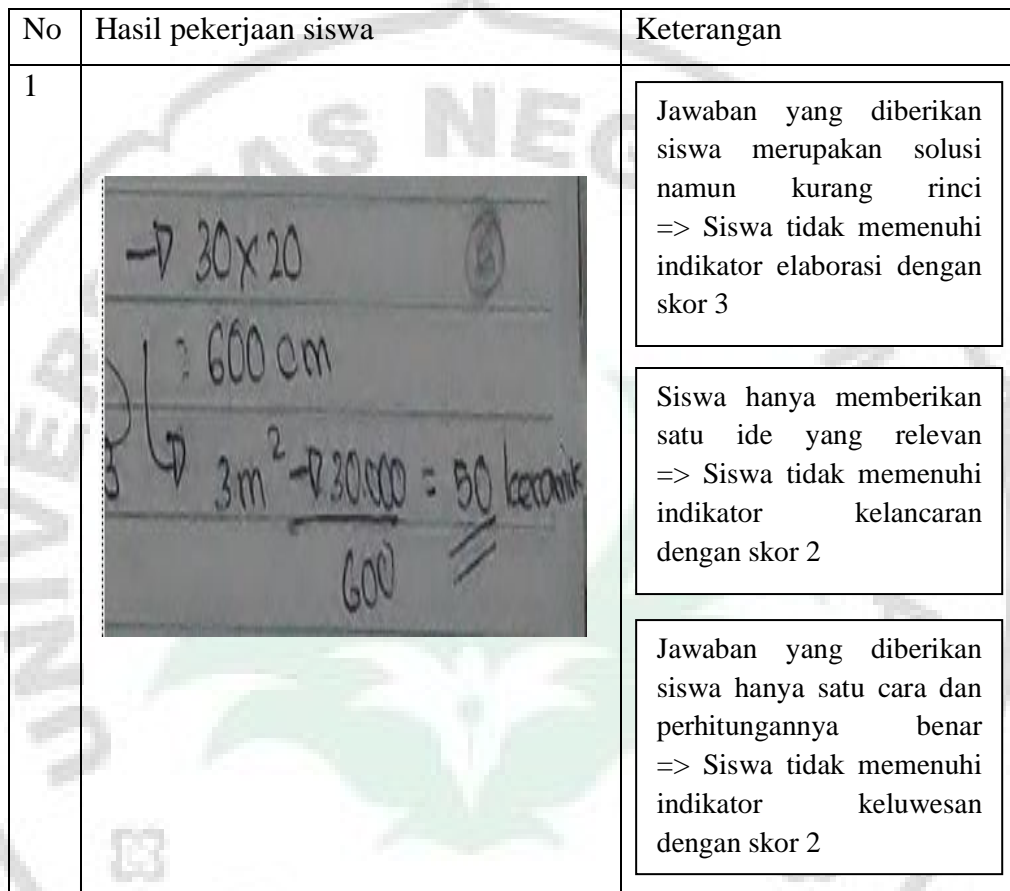 No Hasil pekerjaan siswa Keterangan
1
→ 30×20
= 600 cm
↳ 3m² → 30.000 = 50 keramik
600
Jawaban yang diberikan
siswa merupakan solusi
namun kurang rinci
=> Siswa tidak memenuhi
indikator elaborasi dengan
skor 3
Siswa hanya memberikan
satu ide yang relevan
=> Siswa tidak memenuhi
indikator kelancaran
dengan skor 2
Jawaban yang diberikan
siswa hanya satu cara dan
perhitungannya benar
=> Siswa tidak memenuhi
indikator keluwesan
dengan skor 2